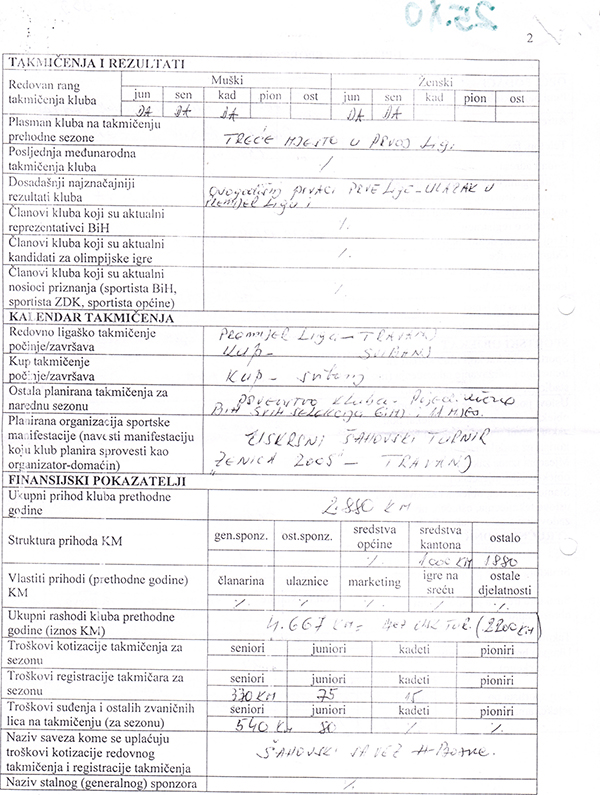 25.X0
2
TAKMIČENJA I REZULTATI
Redovan rang takmičenja kluba
Muški
Ženski
jun sen kad pion ost jun sen kad pion ost
DA DA DA DA DA
Plasman kluba na takmičenju prehodne sezone
TREĆE MJESTO U PRVOJ LIGI
Posljednja međunarodna takmičenja kluba
/
Dosadašnji najznačajniji rezultati kluba
PRVACI PRVE LIGE - ULAZAK U
PREMIJER LIGU
Članovi kluba koji su aktualni reprezentativci BiH
/.
Članovi kluba koji su aktualni kandidati za olimpijske igre
/.
Članovi kluba koji su aktualni nosioci priznanja (sportista BiH, sportista ZDK, sportista općine)
/.
KALENDAR TAKMIČENJA
Redovno ligaško takmičenje počinje/završava
PREMIJER LIGA - TRAVANJ
KUP - SVIBANJ
Kup takmičenje počinje/završava
KUP - svibanj
Ostala planirana takmičenja za narednu sezonu
PRVENSTVO KLUBA -
BIH SVIH SELEKCIJA
Planirana organizacija sportske manifestacije (navesti manifestaciju koju klub planira sprovesti kao organizator-domaćin)
USKRSNI ŠAHOVSKI TURNIR
"ZENICA 2005" - TRAVANJ
FINANSIJSKI POKAZATELJI
Ukupni prihod kluba prethodne godine
2.880 KM
Struktura prihoda KM
gen.sponz. ost.sponz. sredstva općine sredstva kantona ostalo
/. 1000 KM 1880
Vlastiti prihodi (prethodne godine) KM
članarina ulaznice marketing igre na sreću ostale djelatnosti
/. /. /. /. /.
Ukupni rashodi kluba prethodne godine (iznos KM)
4.667 KM (2200 KM)
Troškovi kotizacije takmičenja za sezonu
seniori juniori kadeti pioniri
Troškovi registracije takmičara za sezonu
seniori juniori kadeti pioniri
330 KM 75 15
Troškovi suđenja i ostalih zvaničnih lica na takmičenju (za sezonu)
seniori juniori kadeti pioniri
540 KM 80 / /.
Naziv saveza kome se uplaćuju troškovi kotizacije redovnog takmičenja i registracije takmičenja
ŠAHOVSKI SAVEZ
Naziv stalnog (generalnog) sponzora
/.